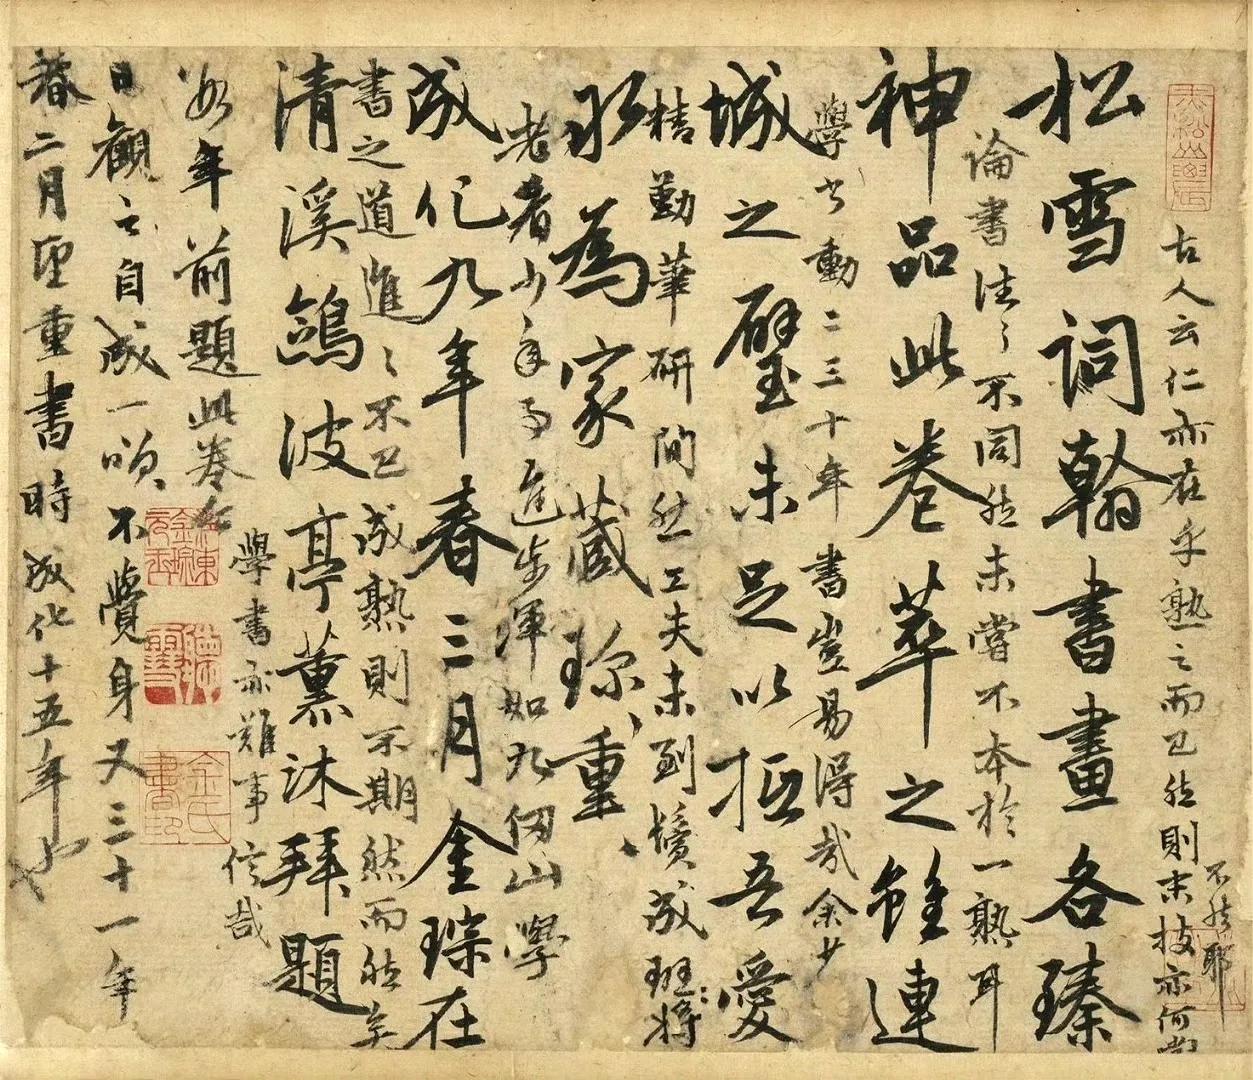 古人云仁亦在乎熟之而已然則末技亦何嘗
不然耶
松雪詞翰書畫各臻
論書法々不同然未嘗不本於一熟耳
神品此卷萃之雖連
學書動二三十年書豈易得哉余少
城之璧未足以抵吾愛
精勤筆研間然工夫未到鬢成斑将
永為家藏珎重
老者少年進步渾如九仞山學
成化九年春三月金琮在
書之道進々不已成熟則不期然而然矣
清溪鷁波亭薰沐拜題
學書亦難事信哉
年前題此卷今
日觀之自成一頌不覺身又三十一年
春二月望重書時成化十五年也